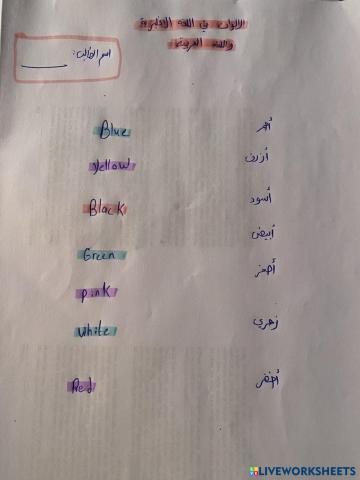 الألوان في اللغة الإنجليزية
واللغة العربية
اسم الطالب:
Blue أحمر
Yellow أزرق
Black أسود
أبيض
Green أصفر
pink
زهري
white
Red أخضر
LIVEWORKSHEETS